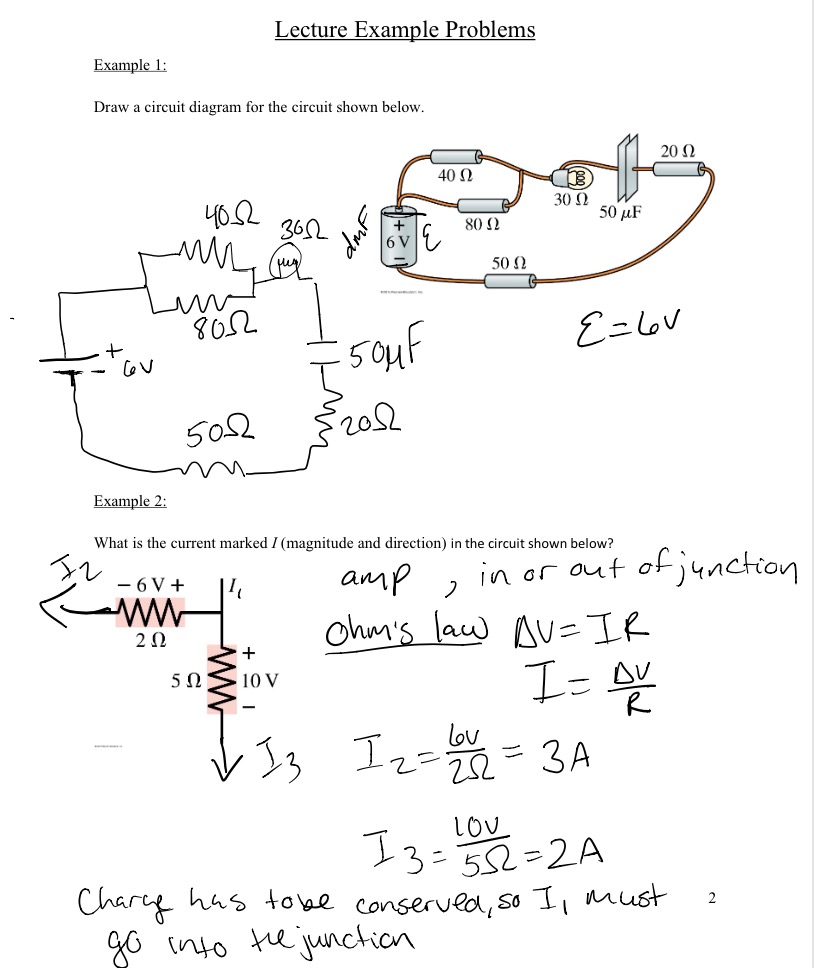 Lecture Example Problems
Example 1:
Draw a circuit diagram for the circuit shown below.
40 Ω
20 Ω
30 Ω
50 μF
80 Ω
+
6 V
−
ℰ
dmF
50 Ω
40Ω
30Ω
80Ω
+
- 6V
50μF
20Ω
50Ω
ℰ=6V
Example 2:
What is the current marked I (magnitude and direction) in the circuit shown below?
I2
− 6 V +
I1
2 Ω
+
5 Ω
10 V
−
I3
amp , in or out of junction
Ohm's law ΔV=IR
I= ΔV/R
I2= 6V/2Ω = 3A
I3= 10V/5Ω =2A
Charge has to be conserved, so I1 must
go into the junction
2